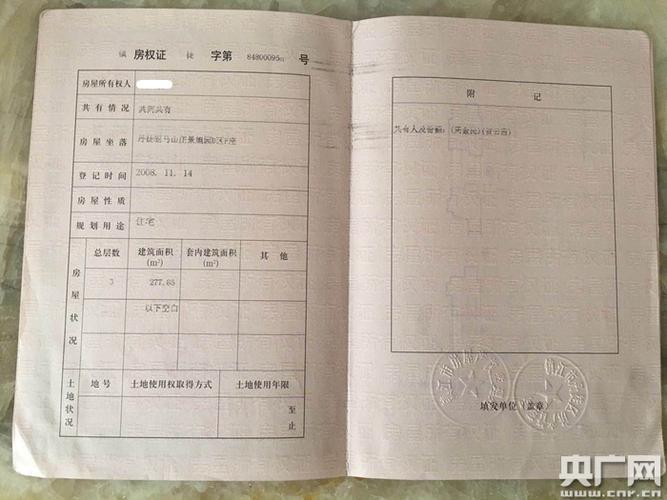 镇 房权证 徒 字第 84800095 号
房屋所有权人
共有情况 共同共有
房屋坐落
登记时间 2008. 11. 14
房屋性质
规划用途 住宅
房屋状况 总层数 建筑面积(m²) 套内建筑面积(m²) 其他
3 277.65
以下空白
土地状况 地号 土地使用权取得方式 土地使用年限
至
止
附 记
共有人及份额:
填发单位(盖章)
央广网
www.cnr.cn